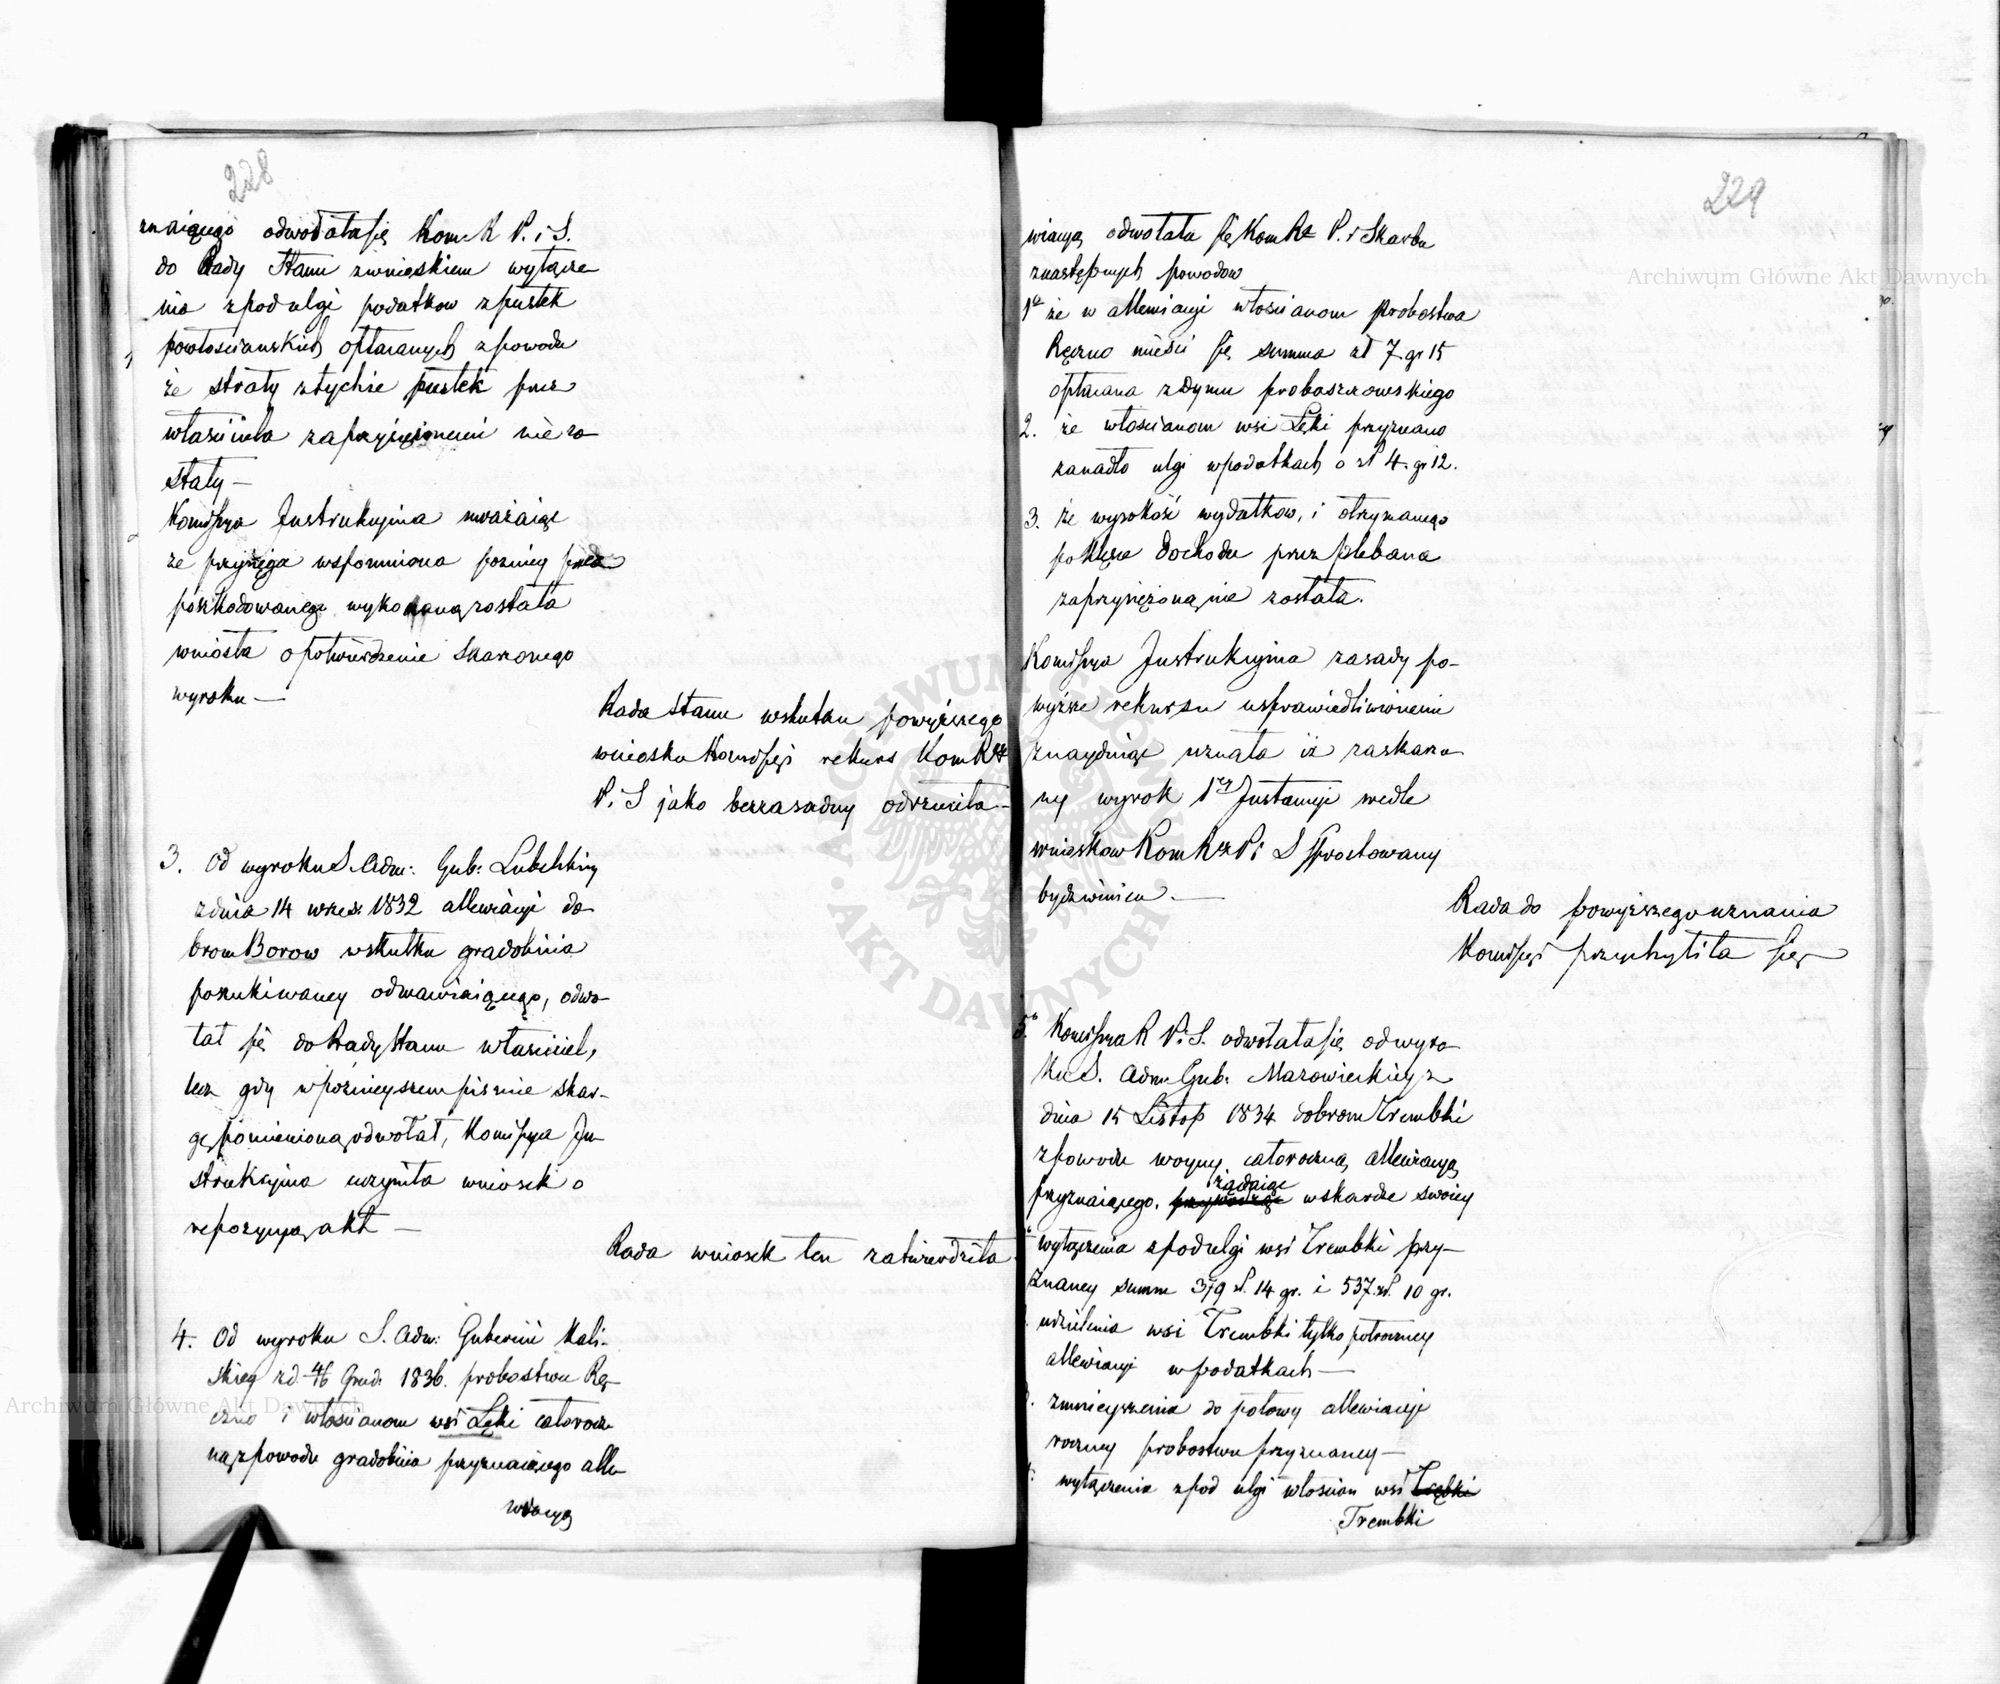 228
znaiącego odwołała się Kom R P. i S.
do Rady Stanu z wnioskiem wyłącze
nia z pod ulgi podatkow z pustek
powłosciańskich opłacanych z powodu
że straty z tychże pustek przez
własciciela zaprzysiężonemi nie zo
stały —
Kommissya Instrukcyina uważaiąc
że przysięga wspomniona pozniey przez
poszkodowanego wykonaną została
wniosła o potwierdzenie skarżonego
wyroku —
Rada Stanu wskutku powyższego
wniosku Kommissyi rekurs Kom Rz
P. i S jako bezzasadny odrzuciła —
3. Od wyroku S. Adm: Gub: Lubelskiey
z dnia 14 wrześ. 1832 allewiacyi do
brom Borow wskutku gradobicia
poszukiwaney odmawiaiącego, odwo
łał się do Rady Stanu właściciel,
lecz gdy w poźnieyszem piśmie skar-
gę pomienioną odwołał, Kommissya In
strukcyina uczyniła wniosek o
repozycyą akt —
Rada wniosek ten zatwierdziła
4. Od wyroku S. Adm: Gubernii Kali-
skiey z d. 4/16 Grud: 1836. probostwu Rę-
czno i włościanom wsi Łęki całorocz
ną z powodu gradobicia przyznaiącego alle
wiacyą
229
wiacyą odwołała się Kom Rz P. i Skarbu
z następnych powodow
1° że w allewiacyi włościanom probostwa
Ręczno mieści się summa zł 7 gr 15
opłacana z dymu proboszczowskiego
2. że włościanom wsi Łęki przyznano
zanadto ulgi w podatkach o zł 4. gr 12.
3. że wysokość wydatkow, i otrzymanego
po klęsce dochodu przez plebana
zaprzysiężoną nie została.
Kommissya Instrukcyina zasady po-
wyższe rekursu usprawiedliwionemi
znayduiąc uznała iż zaskarżo
ny wyrok 1ey Instancyi wedle
wnioskow Kom Rz P i S sprostowany
bydź winien. —
Rada do powyższego uznania
Kommissyi przychyliła się —
5° Kommissya R P. i S. odwołała się od wyro
ku S. Adm Gub. Mazowieckiey z
dnia 15 Listop 1834 dobrom Trembki
z powodu woyny całoroczną allewiacyą
przyznaiącego. przywodząc żądaiąc w skardze swoiey
wyłączenia z pod ulgi wsi Trembki przy-
znaney summ 379 zł. 14 gr. i 537. zł. 10 gr.
udzielenia wsi Trembki tylko połroczney
allewiacyi w podatkach —
zmnieyszenia do połowy allewiacyi
roczney probostwu przyznaney —
wyłączenia z pod ulgi włoscian wsi Trębki
Trembki
Archiwum Główne Akt Dawnych
Archiwum Główne Akt Dawnych
ARCHIWUM GŁÓWNE · AKT DAWNYCH ·